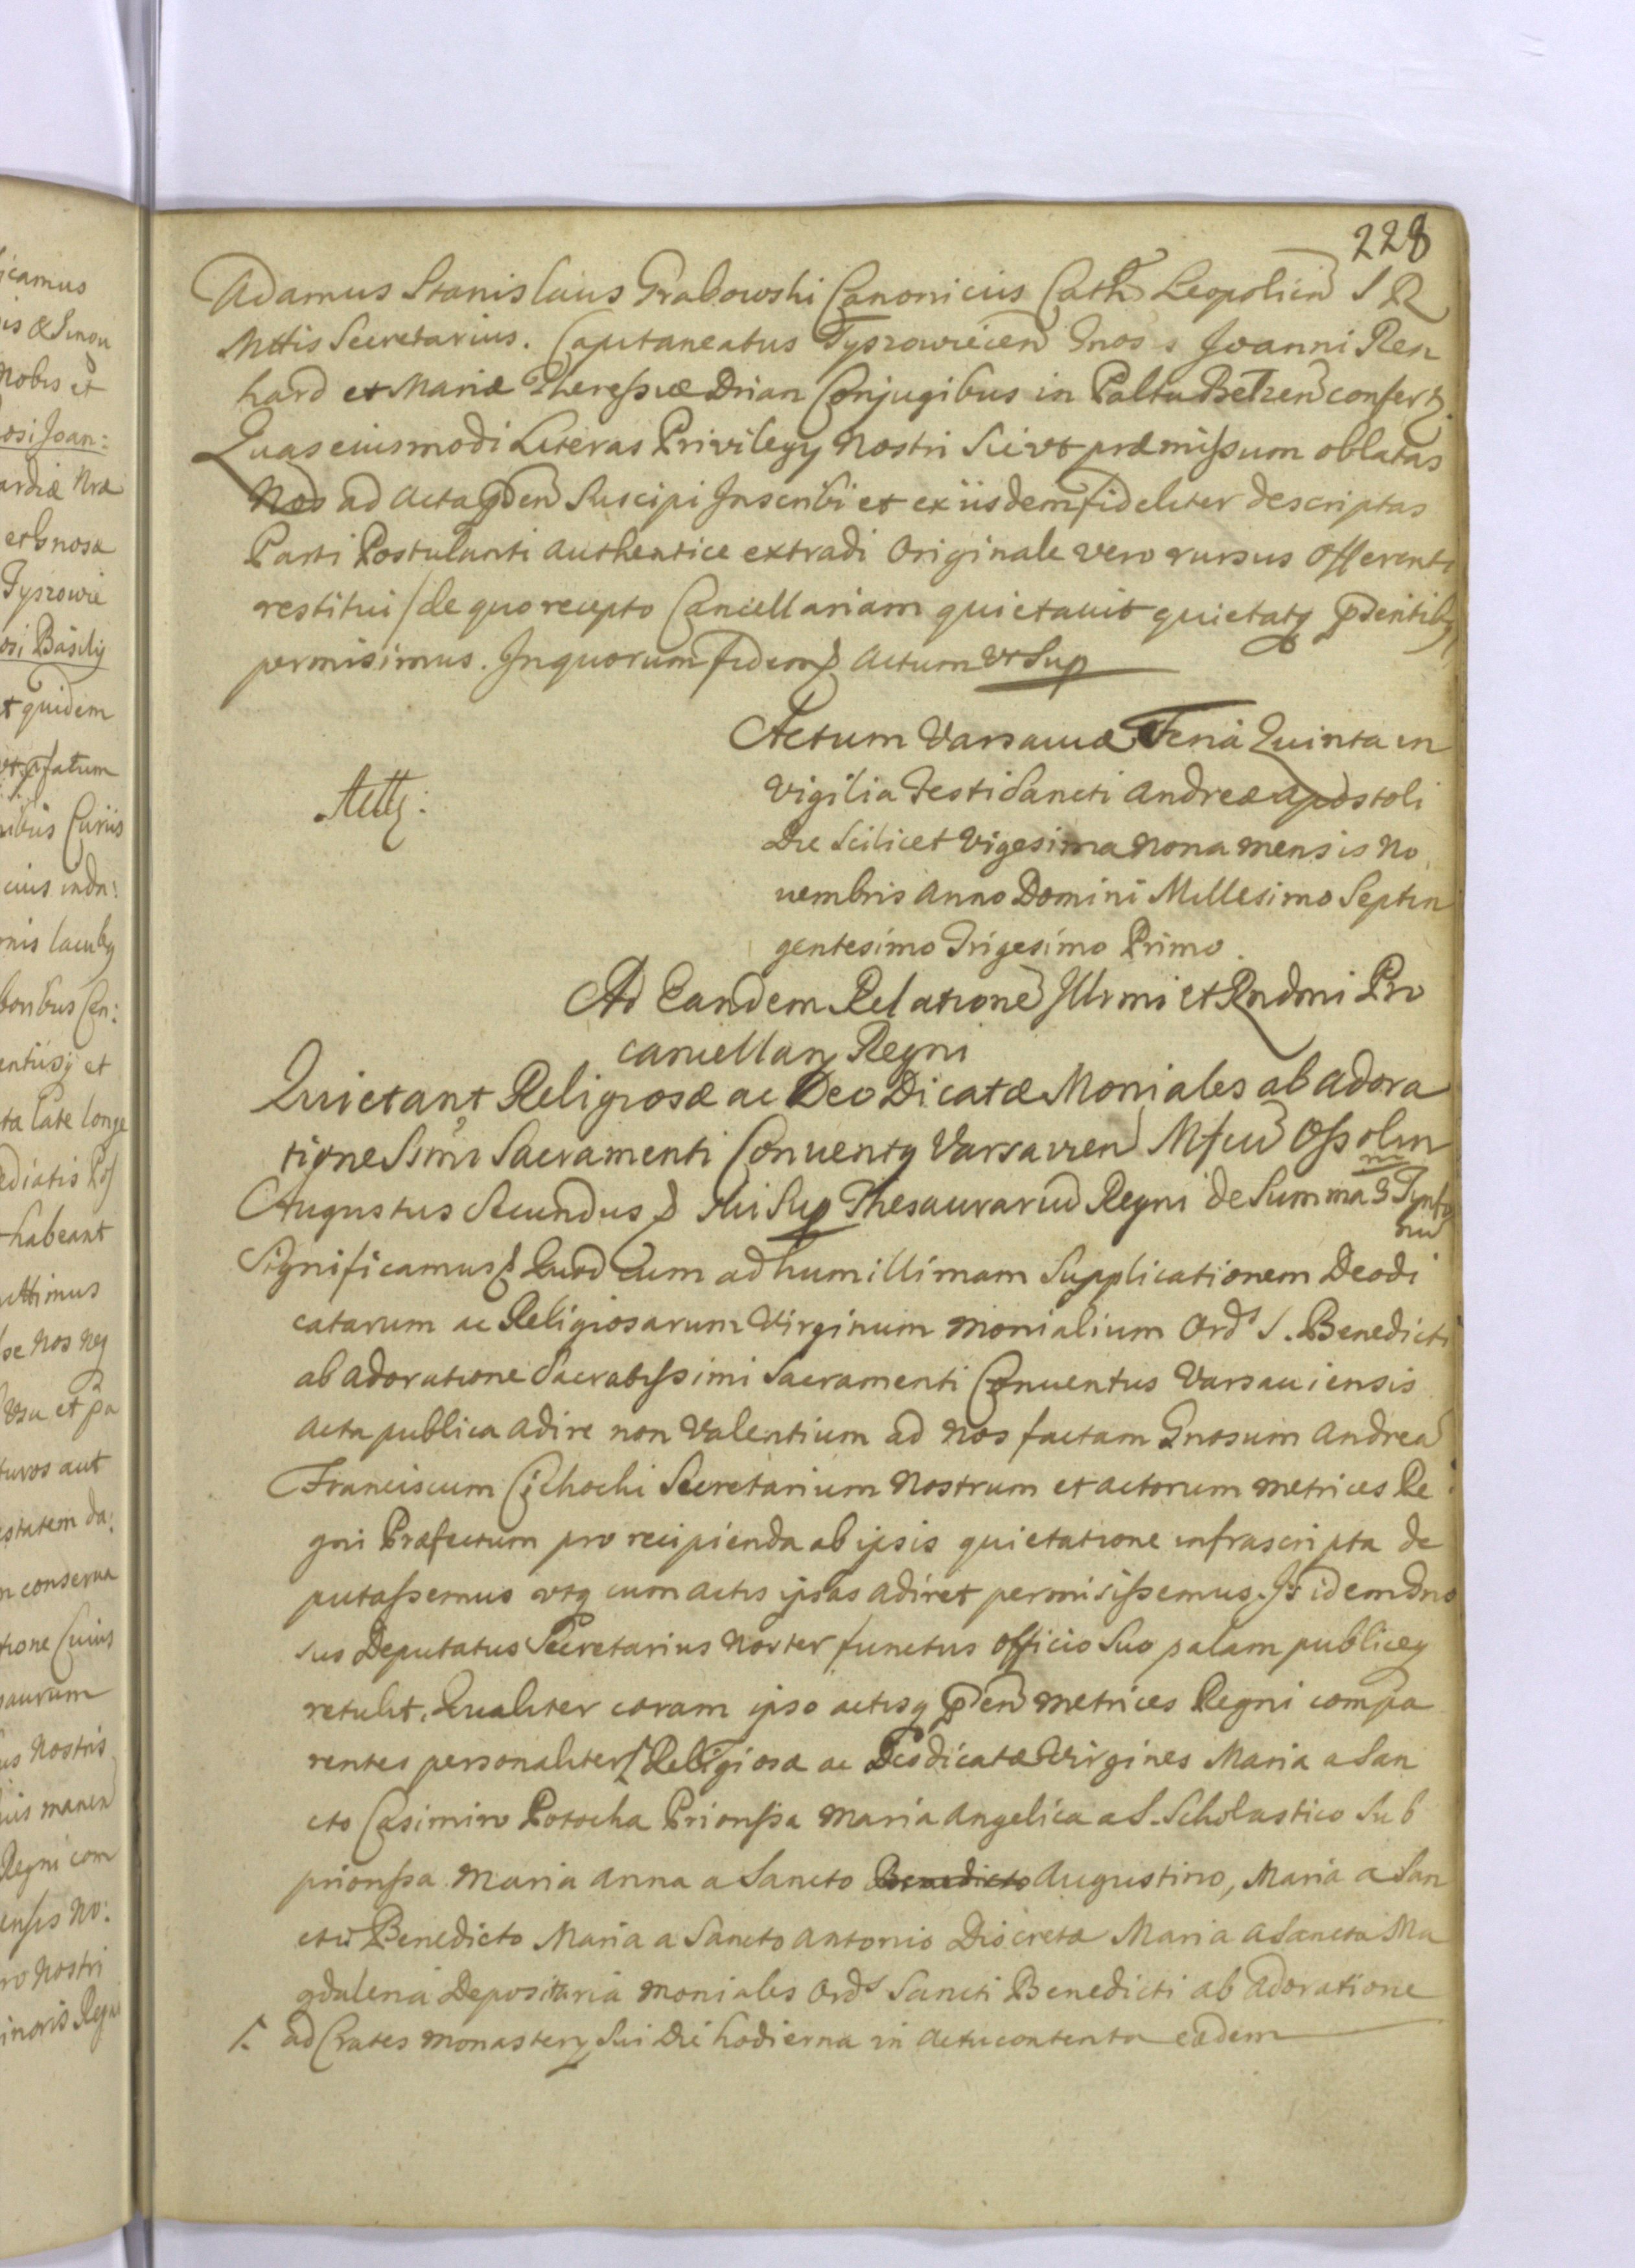 228
Adamus Stanislaus Grabowski Canonicus Cath Leopolien S R
Mttis Secretarius. Capitaneatus Tyszowiecen Gnos s Joanni Ren
hard et Mariæ Theressiæ Drian Conjugibus in Paltu Belzen confertq.
Quas eiusmodi Literas Privilegy Nostri Sicvt præmissum oblatas
Nos ad Acta pden Suscipi Inscribi et ex iisdem fideliter descriptas
Parti Postulanti Authentice extradi Originale vero rursus Offerenti
restitui / de quo recepto Cancellariam quietavit quietatq pdentibq
permisimus. In quorum fidem Actum vt Sup
Actum Varsaviæ Feria Quinta in
Vigilia Festi Sancti Andreæ Apostoli
Die Scilicet Vigesima Nona mensis No
uembris Anno Domini Millesimo Septin
gentesimo Trigesimo Primo.
Ad Eandem Relatione Illrmi et Rndmi Pro
cancellarÿ Regni
Quietant Religiosæ ac Deo Dicatæ Moniales ab adora
tione Ssmi Sacramenti Conventq Varsavien Mfcu Ossolin
Augustus Secundus Thesaurariu Regni de Summa 3 Tynfo
nu
Significamus Quod cum ad humillimam Supplicationem Deodi
catarum ac Religiosarum Virginum Monialium Ords S. Benedicti
ab Adoratione Sacratissimi Sacramenti Conventus Varsauiensis
Acta publica adire non Valentium ad Nos factam Gnosum Andrea
Franciscum Cichocki Secretarium Nostrum et Actorum metrices Re
gni Præfectum pro recipienda ab ipsis quietatione infrascripta de
putassemus vtq cum Actis ipsas adiret permisissemus. Is idem Gno
sus Deputatus Secretarius Noster functus Officio Suo palam publiceq
retulit. Qualiter coram ipso actisq pden Metrices Regni compa
rentes personaliter Religiosæ ac Deodicatæ Virgines Maria a San
cto Casimiro Potocka Priorissa Maria Angelica a S. Scholastico Sub
priorissa Maria Anna a Sancto Benedicto Augustino, Maria a San
cto Benedicto Maria a Sancto Antonio Discretæ Maria a Sancta Ma
gdalena Depositaria Moniales Ords Sancti Benedicti ab Adoratione
/. ad Crates Monasterÿ Sui Die hodierna in Actu contenta eadem